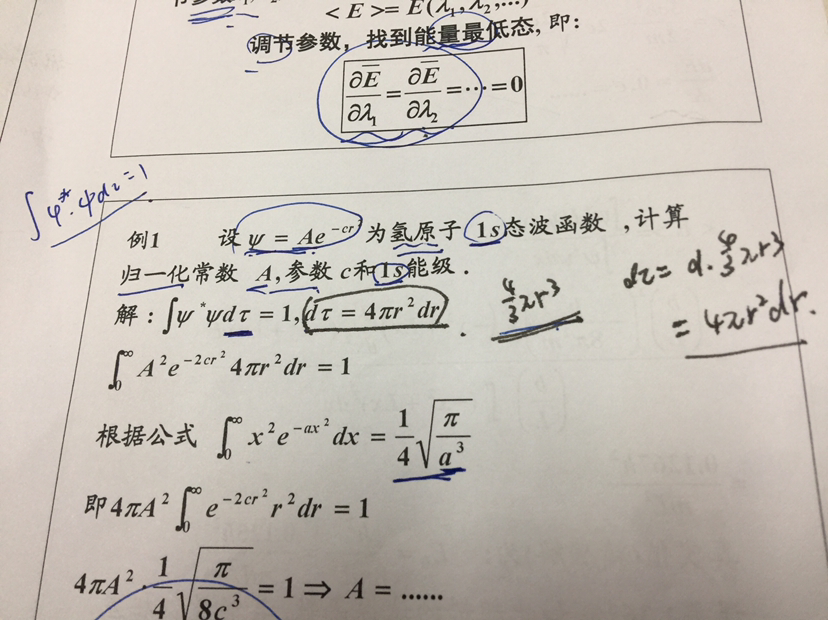 < E >= E(λ₁, λ₂,...)
调节参数，找到能量最低态, 即:
∂E̅/∂λ₁ = ∂E̅/∂λ₂ = ··· = 0
∫ψ*·ψdτ=1
例1 设 ψ = Ae^{-cr²} 为氢原子 1s态波函数 , 计算
归一化常数 A, 参数 c和1s能级 .
解 : ∫ψ*ψdτ = 1, dτ = 4πr²dr .
4/3 πr³
dτ = d·4/3 πr³
= 4πr²dr.
∫₀^∞ A²e^{-2cr²}4πr²dr = 1
根据公式 ∫₀^∞ x²e^{-ax²}dx = 1/4 √(π/a³)
即 4πA² ∫₀^∞ e^{-2cr²}r²dr = 1
4πA² · 1/4 √(π/8c³) = 1 ⇒ A = ......